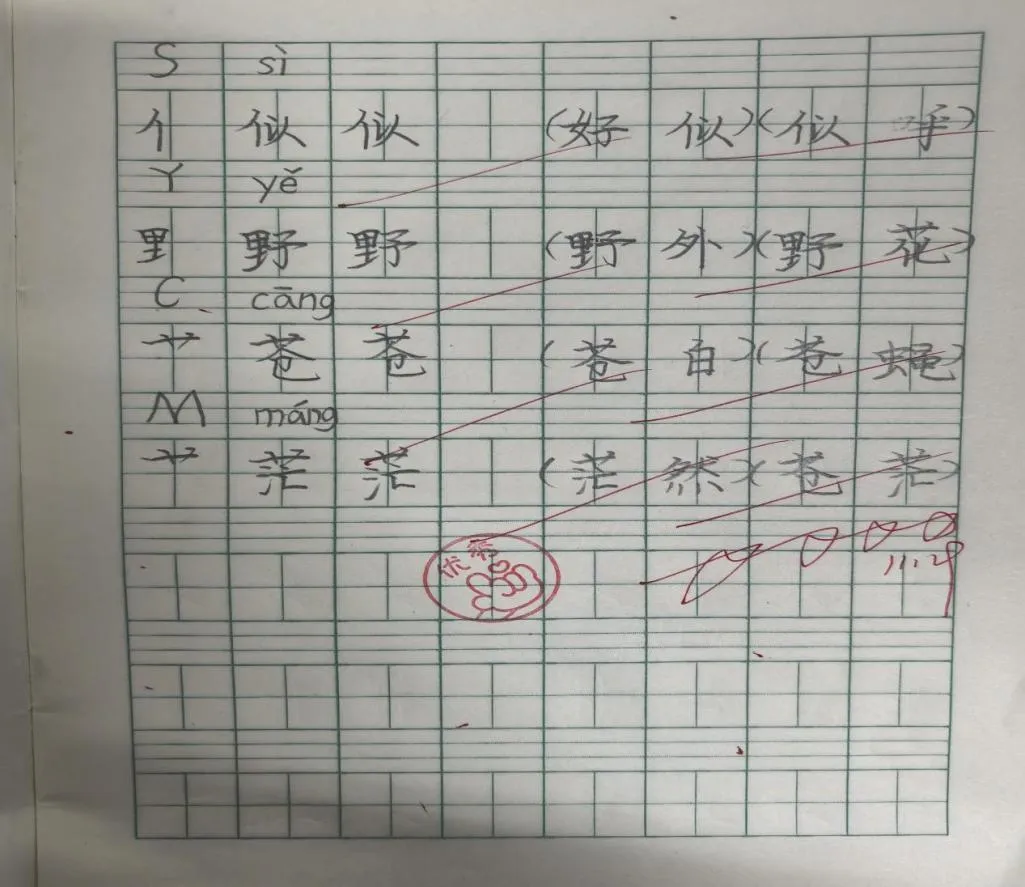 S sì
亻 似 似 (好似)(似乎)
Y yě
里 野 野 (野外)(野花)
C cāng
艹 苍 苍 (苍白)(苍蝇)
M máng
艹 茫 茫 (茫然)(苍茫)
优秀
11.29